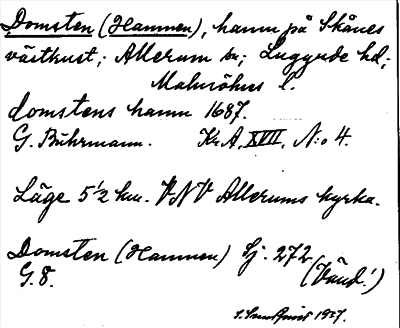 Domsten (Hamnen), hamn på Skånes
västkust; Allerum sn; Luggude hd;
Malmöhus l.
domstens hamn 1687.
G. Buhrmann. Kr.A, XVII, N:o 4.
Läge 5 1/2 km. VNV Allerums kyrka.
Domsten (Hamnen) Sj. 272
G. 8. (Vänd!)
1927.